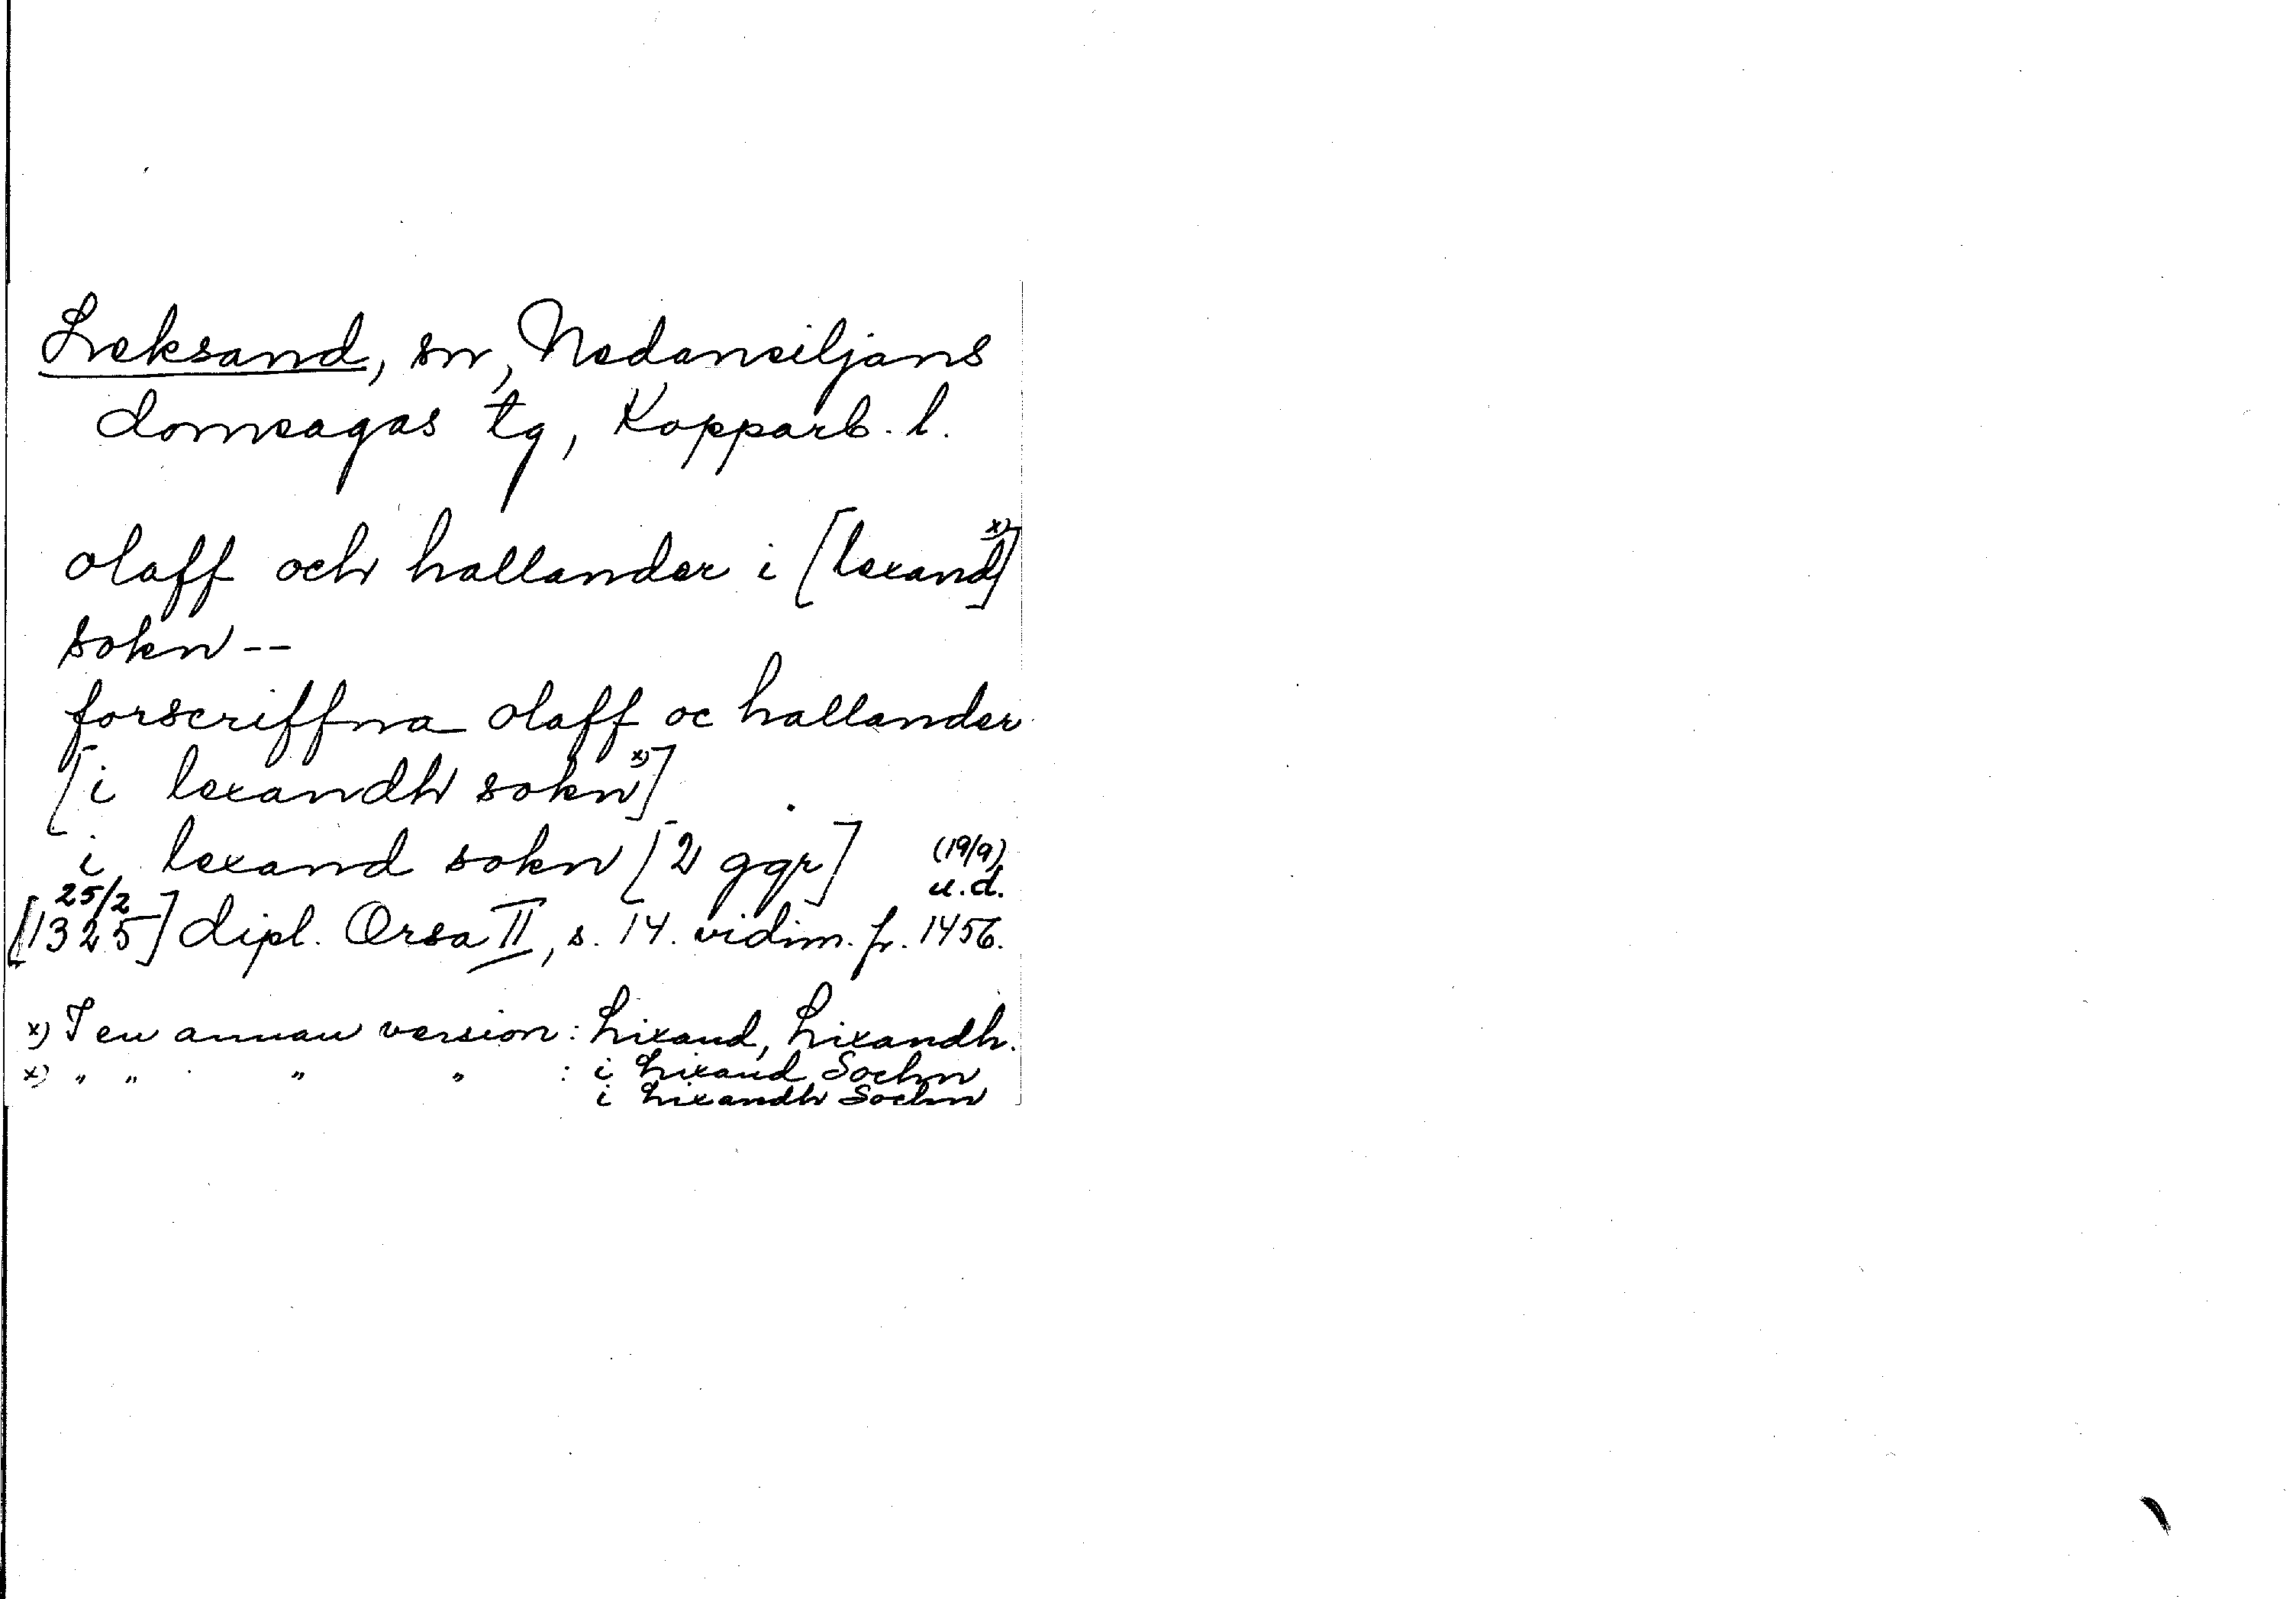 Leksand, sn, Nedansiljans
domsagas tg, Kopparb. l.
olaff och hallander i [lexand x)]
sokn --
forscriffna olaff oc hallander
[i lexandh sokn x)]
i lexand sokn [2 ggr] (19/9)
25/2 u.d.
[1325] dipl. Orsa II, s. 14. vidim. fr. 1456.
x) I en annan version: Lixand, Lixandh.
x) " " " " : i Lixand Sochn
i Lixandh Sochn